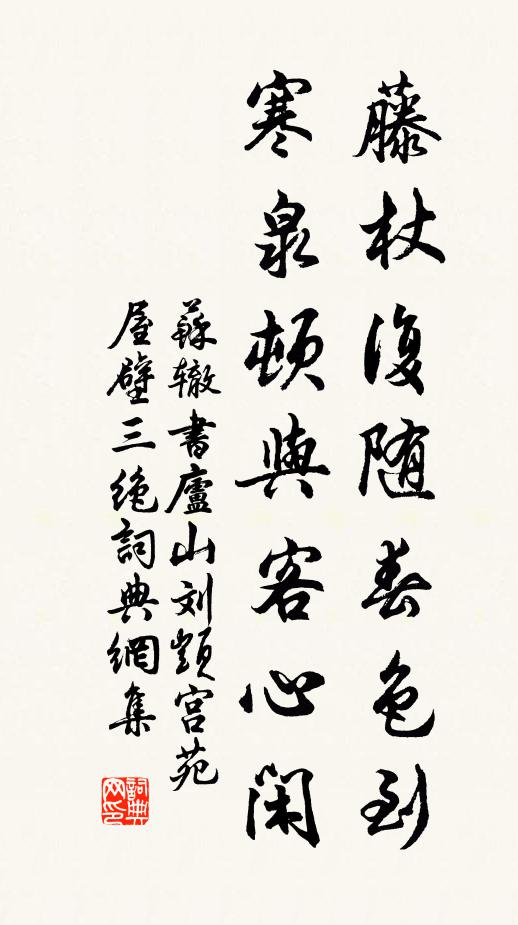 藤杖復随春色到
寒泉頓與客心閑
蘇轍書廬山刘顗宮苑
屋壁三絶詞典網集
詞典
网印